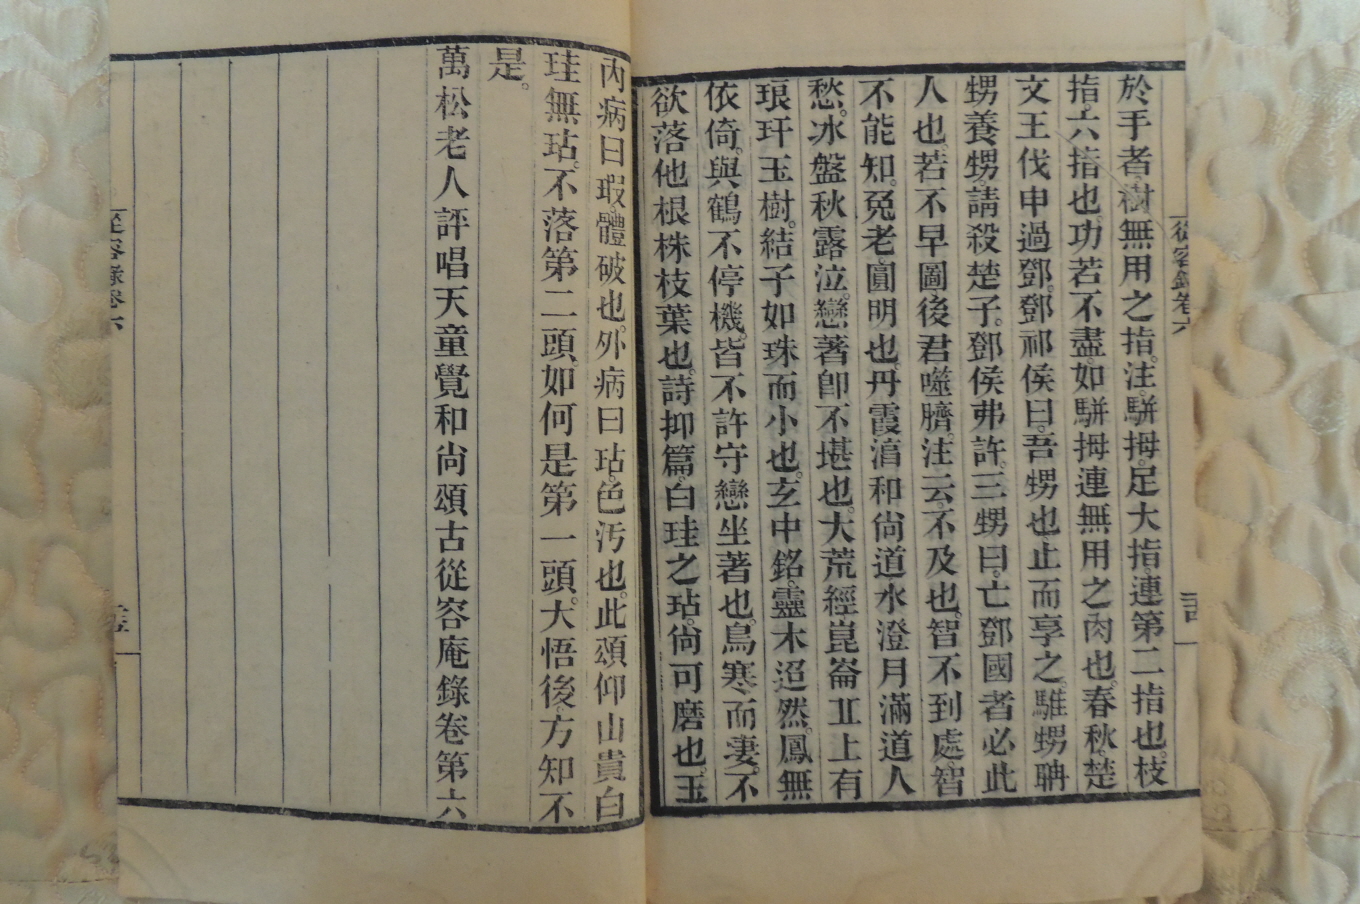 於手者。樹無用之指。注。駢拇。足大指。連第二指也。枝
指。六指也。功若不盡。如駢拇連無用之肉也。春秋。楚
文王伐申過鄧。鄧祁侯曰。吾甥也。止而享之。騅甥聃
甥養甥。請殺楚子。鄧侯弗許。三甥曰。亡鄧國者必此
人也。若不早圖。後君噬臍。注云。不及也。智不到處。智
不能知。兔老。圓明也。丹霞淳和尚道水澄月滿道人
愁。冰盤秋露泣。戀著卽不堪也。大荒經崑崙丘上有
琅玕玉樹。結子如珠而小也。玄中銘。靈木迢然。鳳無
依倚。與鶴不停機。皆不許守戀坐著也。鳥寒而凄。不
欲落他根株枝葉也。詩抑篇。白珪之玷。尙可磨也。玉
內病曰瑕。體破也。外病曰玷。色汚也。此頌仰山貴白
珪無玷。不落第二頭。如何是第一頭。大悟後。方知不
是。
萬松老人評唱天童覺和尙頌古從容庵錄卷第六
從容錄卷六